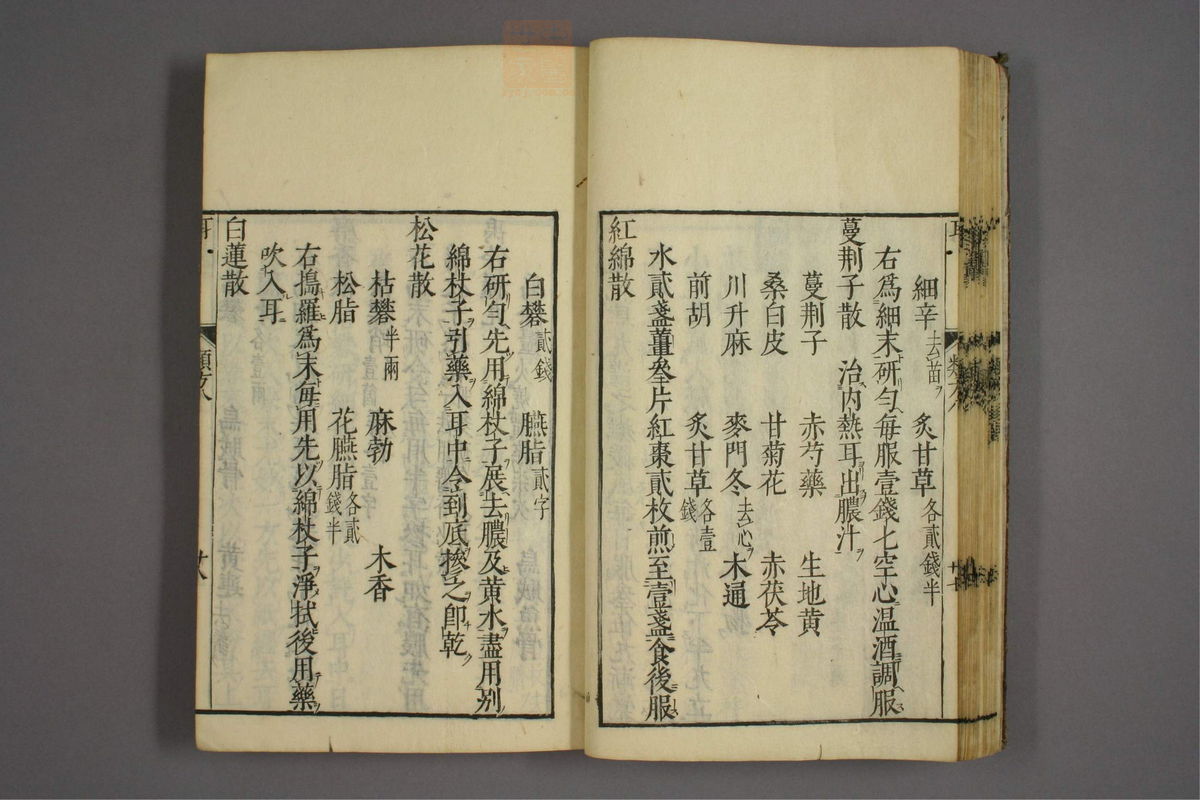 細辛去苗ヲ 炙甘草各貳錢半
右爲細末研勻毎服壹錢匕空心温酒調服
蔓荆子散 治内熱耳出膿汁
蔓荆子 赤芍藥 生地黄
桑白皮 甘菊花 赤茯苓
川升麻 麥門冬去心ヲ 木通
前胡 炙甘草各壹錢
水貳盞薑叁片紅棗貳枚煎至壹盞食後服
紅綿散
白礬貳錢 臙脂貳字
右研勻先用綿杖子展去膿及黄水盡用別
綿杖子引藥入耳中令到底摻之即乾
松花散
枯礬半兩 麻勃 木香
松脂 花臙脂各貳錢半
右搗羅爲末毎用先以綿杖子淨拭後用藥
吹入耳
白蓮散